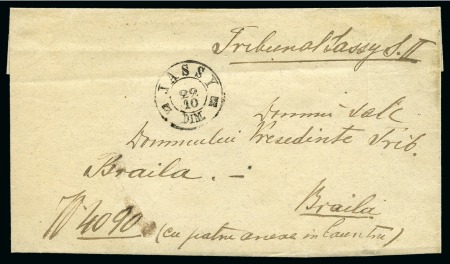 Tribunal Iassy S. II
JASSY
22
10
DIM.
Domniei sale
Domnului Presedinte Trib.
Braila. -
Braila
Nº 4090 (cu patru anexe in launtru)